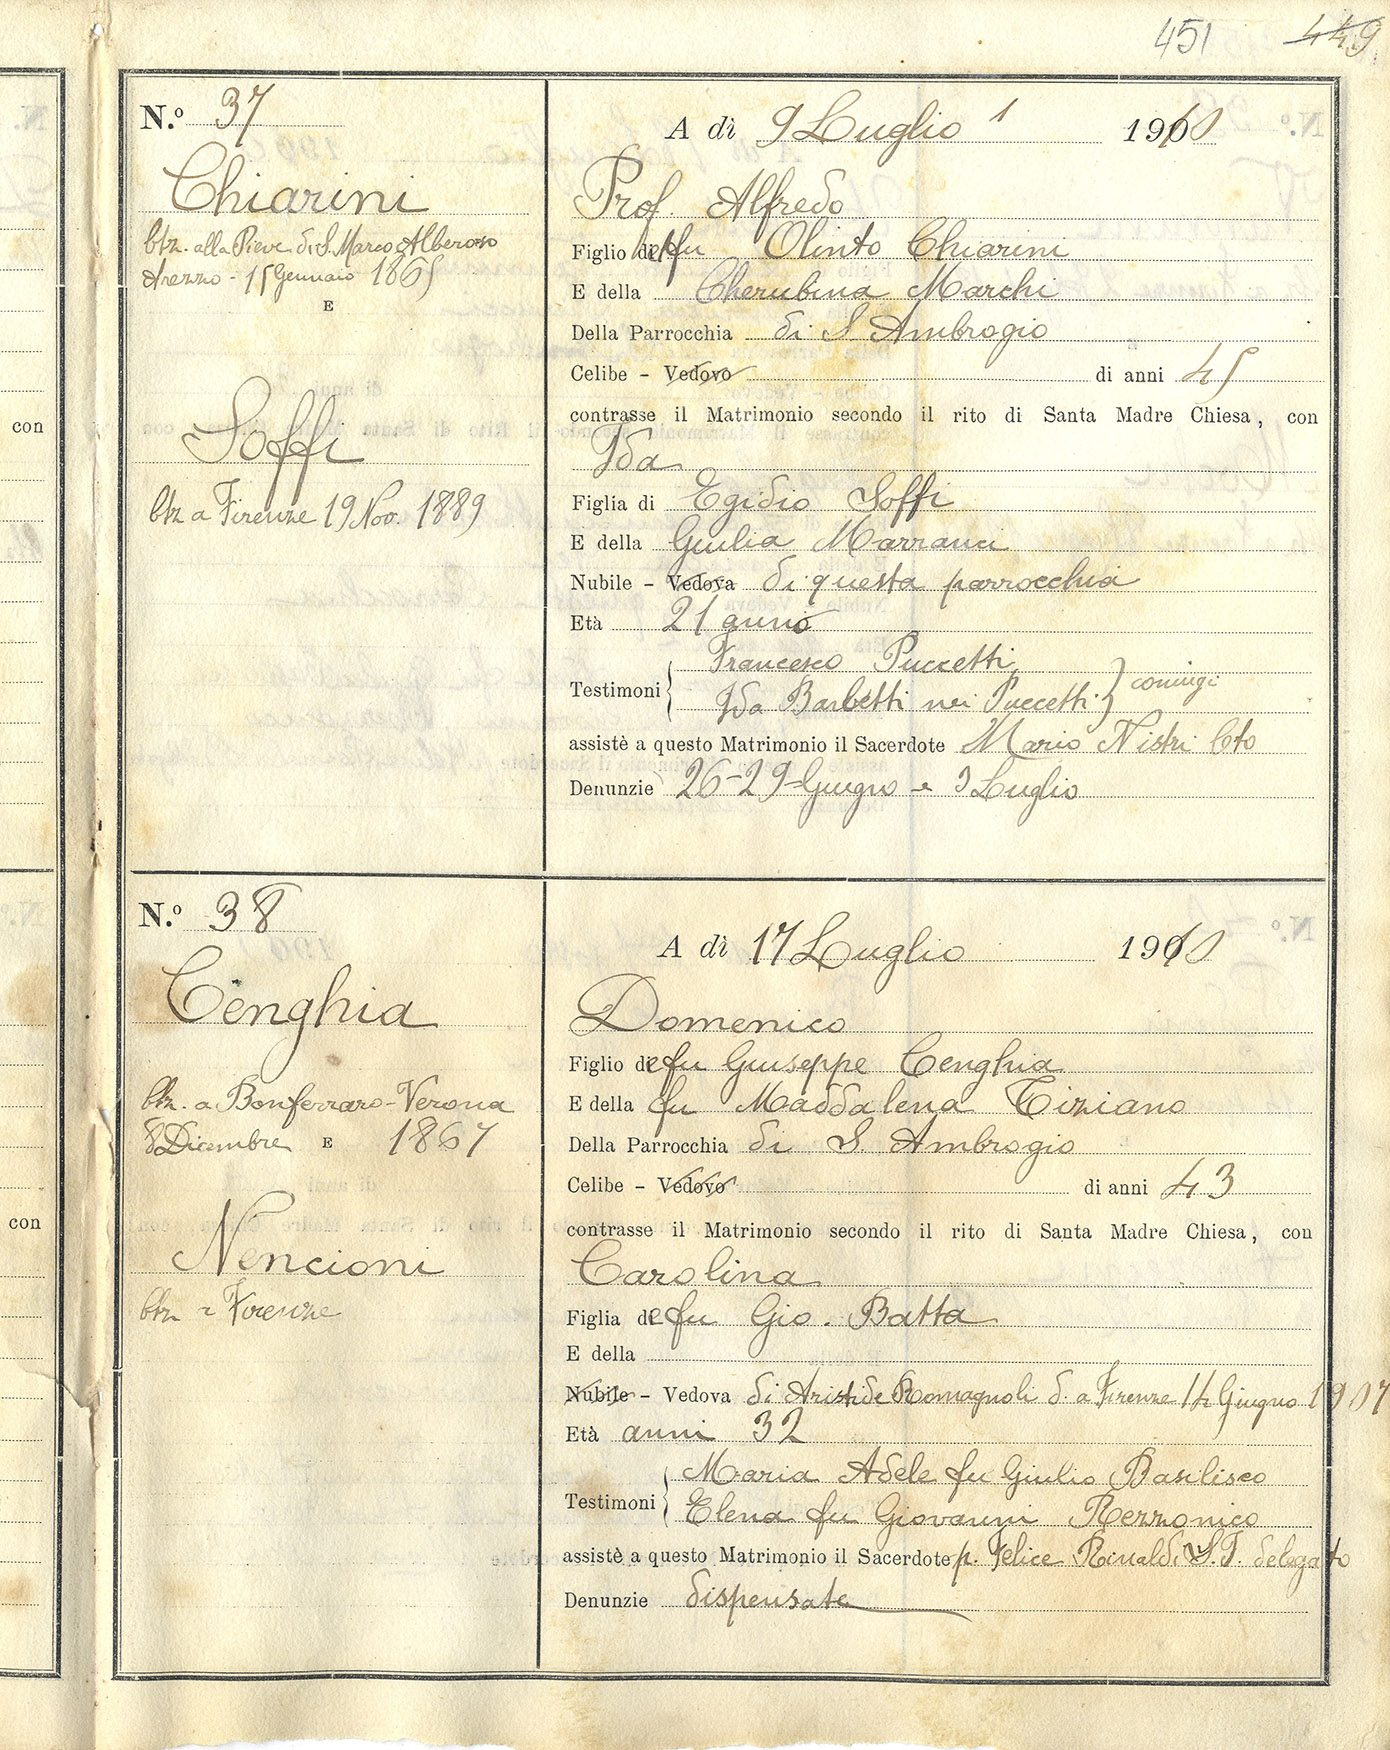 451 449
N.º 37
Chiarini
btz. alla Pieve di S. Marco Alberoro
Arezzo - 15 Gennaio 1865
E
Soffi
btz a Firenze 19 Nov. 1889
A dì 9 Luglio 1910
Prof. Alfredo
Figlio del fu Olinto Chiarini
E della Cherubina Marchi
Della Parrocchia di S Ambrogio
Celibe - Vedovo di anni 45
contrasse il Matrimonio secondo il rito di Santa Madre Chiesa, con
Ida
Figlia di Egidio Soffi
E della Giulia Marranci
Nubile - Vedova di questa parrocchia
Età 21 anno
Testimoni Francesco Puccetti
Ida Barbetti nei Puccetti coniugi
assistè a questo Matrimonio il Sacerdote Mario Nistri Cto
Denunzie 26-29 Giugno e 3 Luglio
N.º 38
Cenghia
btz. a Bonferraro - Verona
8 Dicembre E 1867
Nencioni
btz a Firenze
A dì 17 Luglio 1910
Domenico
Figlio del fu Giuseppe Cenghia
E della fu Maddalena Tiziano
Della Parrocchia di S. Ambrogio
Celibe - Vedovo di anni 43
contrasse il Matrimonio secondo il rito di Santa Madre Chiesa, con
Carolina
Figlia del fu Gio. Batta
E della
Nubile - Vedova di Aristide Romagnoli d. a Firenze 14 Giugno 1907
Età anni 32
Testimoni Maria Adele fu Giulio Basilisco
Elena fu Giovanni Rezzonico
assistè a questo Matrimonio il Sacerdote p. Felice Rinaldi S.J. delegato
Denunzie dispensate
con
con